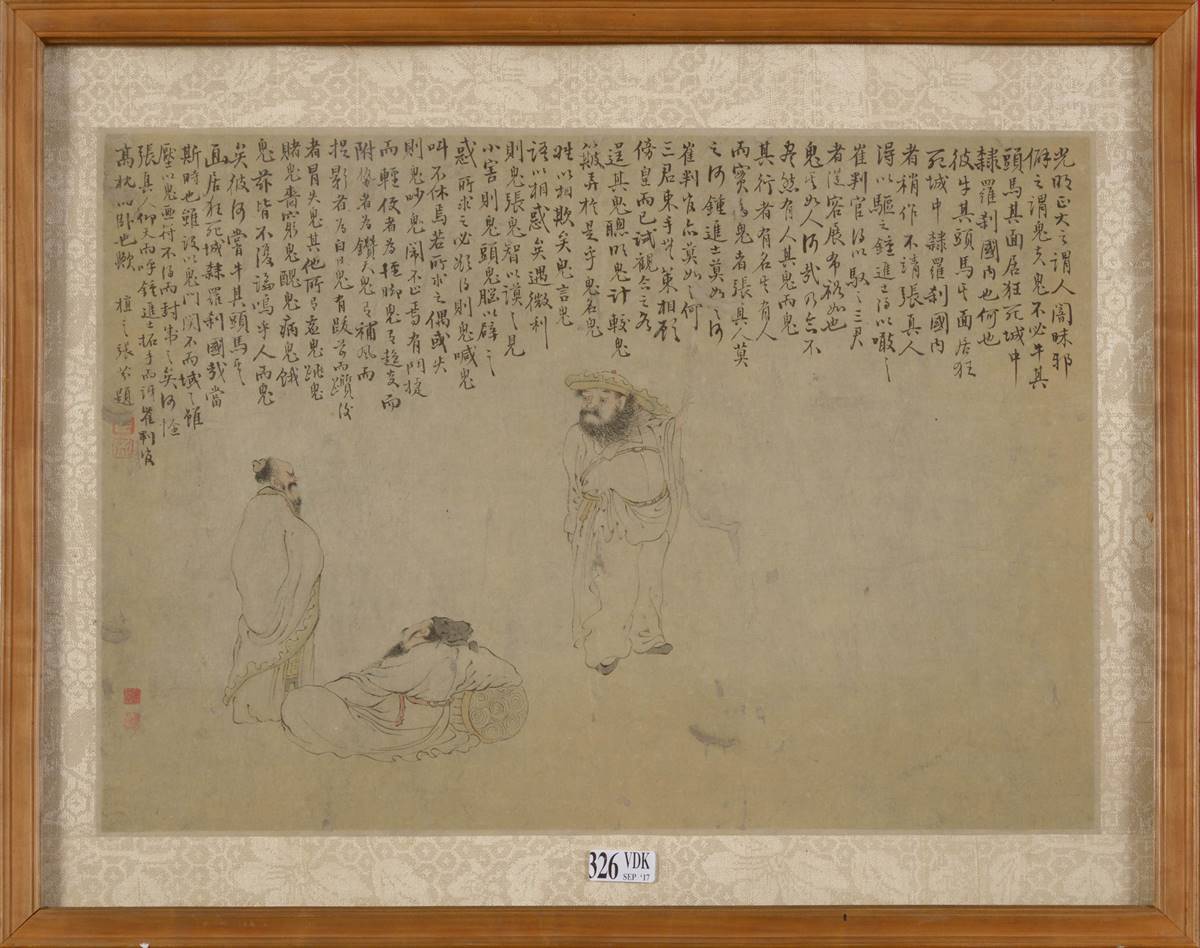 光明正大之謂人闇昧邪
僻之謂鬼矣鬼不必牛其
頭馬其面居狂死城中
隸羅刹國内也何也
彼牛其頭馬其面居狂
死城中隸羅刹國内
者稍作不靖張真人
得以驅之鍾進士得以噉之
崔判官得以馭之三君
者從容展布裕如也
鬼其如人何哉乃忽不
然有人其鬼而鬼
其行者有名其有人
而實為鬼者張真人莫
之何鍾進士莫如之何
崔判官亦莫如之何
三君束手無策相顧
傍皇而已試觀今之為
逞其鬼聰明鬼計較鬼
簸弄於是乎鬼名鬼
姓以相欺矣鬼言鬼
語以相惑矣遇微利
則鬼張鬼智以謨之見
小害則鬼頭鬼腦以避之
惑所求之必欲得則鬼喊鬼
叫不休焉若所求之偶或失
則鬼吵鬼鬧不止焉有門捷
而輕便者為捱腳鬼有趨炎而
附勢者為鑽天鬼有補風而
捉影者為白日鬼有跋前而躓後
者冒失鬼其他所為虛鬼跳鬼
賭鬼嗇鬼窮鬼醜鬼病鬼餓
鬼茲皆不復論嗚乎人而鬼
矣彼何嘗牛其頭馬其
面居狂死城隸羅刹國哉當
斯時也雖设以鬼門關不而域之雖
壓以鬼画符不得而封常之矣何怪
張真人仰天而呼鍾進士拓手而訶崔判官
高枕而卧也歟 植之張 題
326 VDK
SEP '17